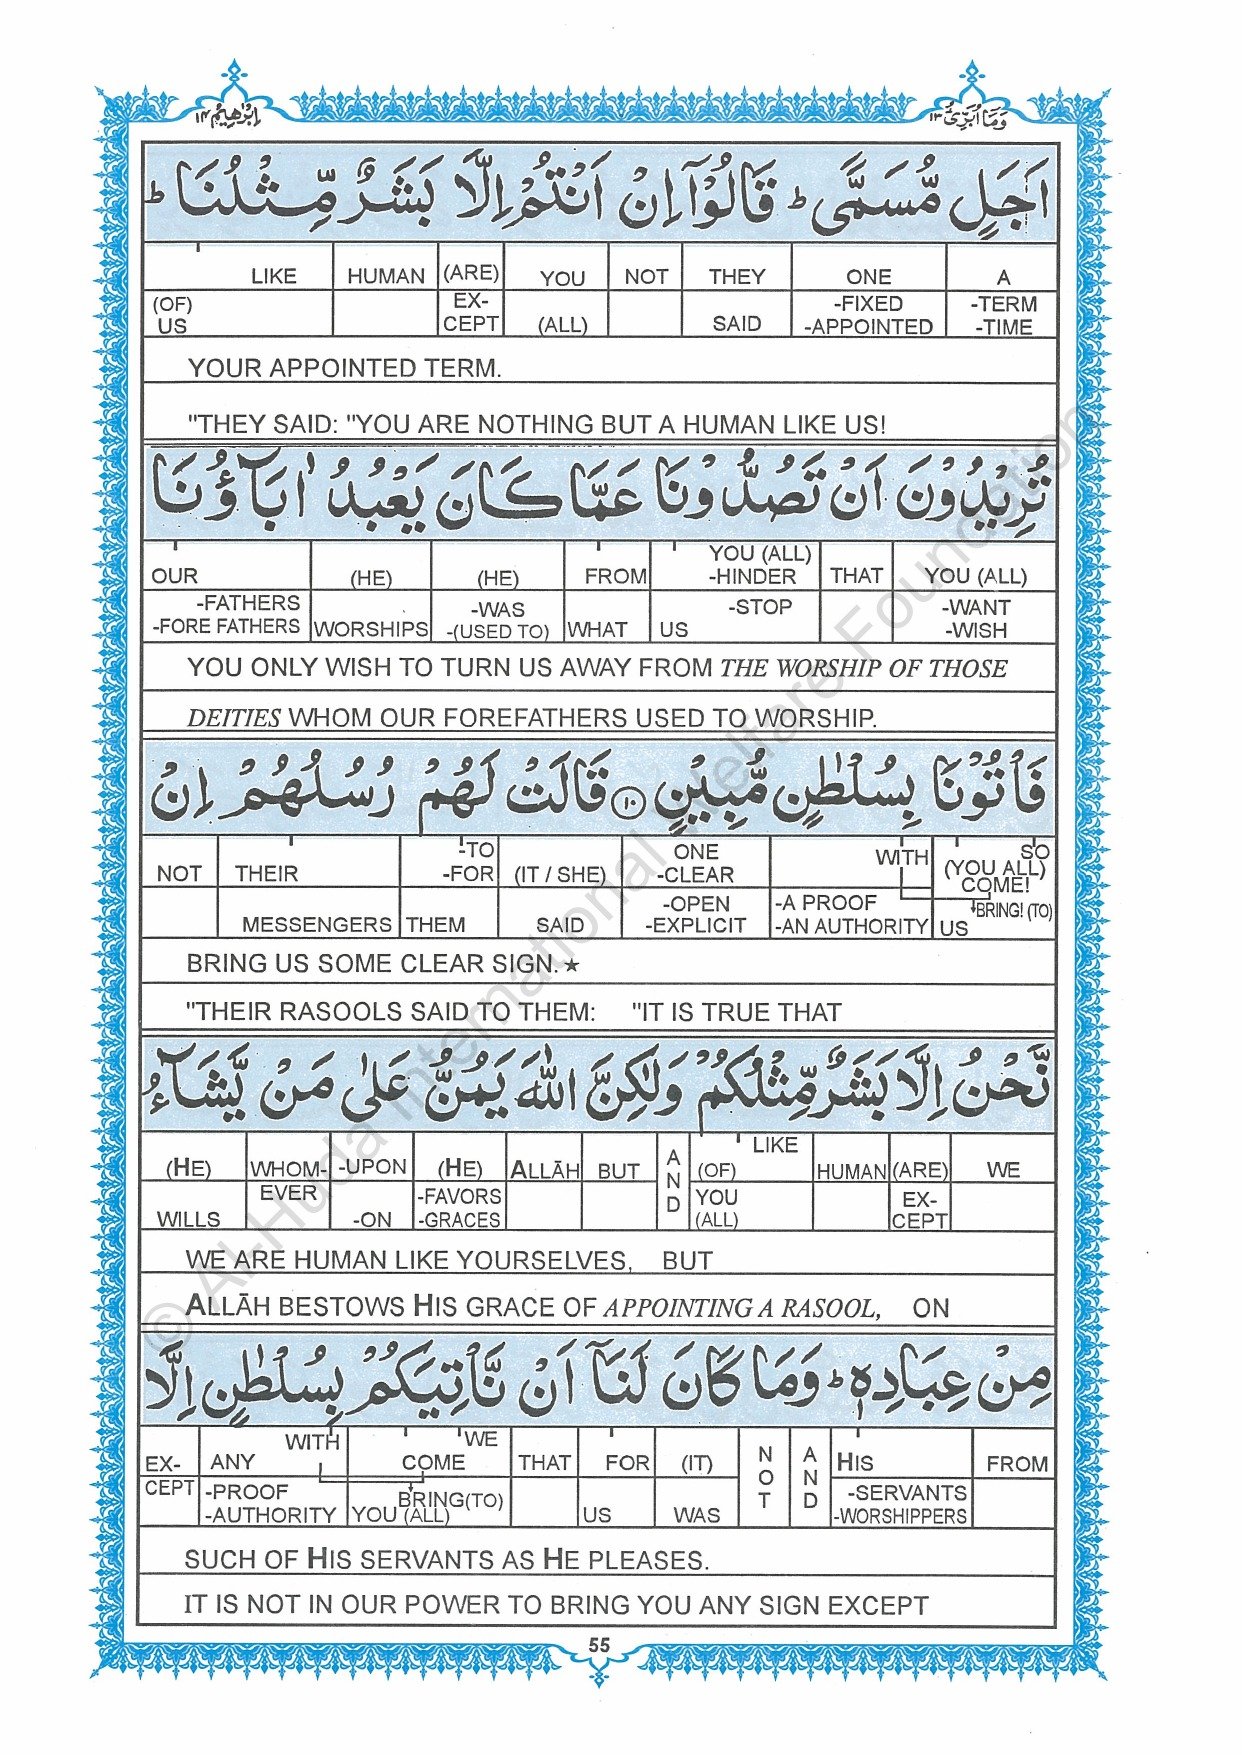 اِبْرٰهِیْم ۱۴
وَمَآ اُبَرِّئُ ۱۳
اَجَلٍ مُّسَمًّى ؕ قَالُوْۤا اِنْ اَنْتُمْ اِلَّا بَشَرٌ مِّثْلُنَا ؕ
LIKE HUMAN (ARE) YOU NOT THEY ONE A
(OF) US EX-CEPT (ALL) SAID -FIXED -APPOINTED -TERM -TIME
YOUR APPOINTED TERM.
"THEY SAID: "YOU ARE NOTHING BUT A HUMAN LIKE US!
تُرِیْدُوْنَ اَنْ تَصُدُّوْنَا عَمَّا كَانَ یَعْبُدُ اٰبَآؤُنَا
OUR (HE) (HE) FROM YOU (ALL) -HINDER THAT YOU (ALL)
-FATHERS -FORE FATHERS WORSHIPS -WAS -(USED TO) WHAT US -STOP -WANT -WISH
YOU ONLY WISH TO TURN US AWAY FROM THE WORSHIP OF THOSE
DEITIES WHOM OUR FOREFATHERS USED TO WORSHIP.
فَاْتُوْنَا بِسُلْطٰنٍ مُّبِیْنٍ ۱۰ قَالَتْ لَهُمْ رُسُلُهُمْ اِنْ
NOT THEIR -TO -FOR (IT / SHE) ONE -CLEAR WITH SO (YOU ALL) COME!
MESSENGERS THEM SAID -OPEN -EXPLICIT -A PROOF -AN AUTHORITY BRING! (TO) US
BRING US SOME CLEAR SIGN. ★
"THEIR RASOOLS SAID TO THEM: "IT IS TRUE THAT
نَّحْنُ اِلَّا بَشَرٌ مِّثْلُكُمْ وَلٰكِنَّ اللّٰهَ یَمُنُّ عَلٰى مَنْ یَّشَآءُ
(HE) WHOM- -UPON (HE) ALLĀH BUT AND LIKE (OF) HUMAN (ARE) WE
WILLS EVER -ON -FAVORS -GRACES YOU (ALL) EX-CEPT
WE ARE HUMAN LIKE YOURSELVES, BUT
ALLĀH BESTOWS HIS GRACE OF APPOINTING A RASOOL, ON
مِنْ عِبَادِهٖ ؕ وَمَا كَانَ لَنَاۤ اَنْ نَّاْتِیَكُمْ بِسُلْطٰنٍ اِلَّا
EX- ANY WITH WE COME THAT FOR (IT) NOT AND HIS FROM
CEPT -PROOF -AUTHORITY BRING(TO) YOU (ALL) US WAS -SERVANTS -WORSHIPPERS
SUCH OF HIS SERVANTS AS HE PLEASES.
IT IS NOT IN OUR POWER TO BRING YOU ANY SIGN EXCEPT
55
© Al-Huda International Welfare Foundation